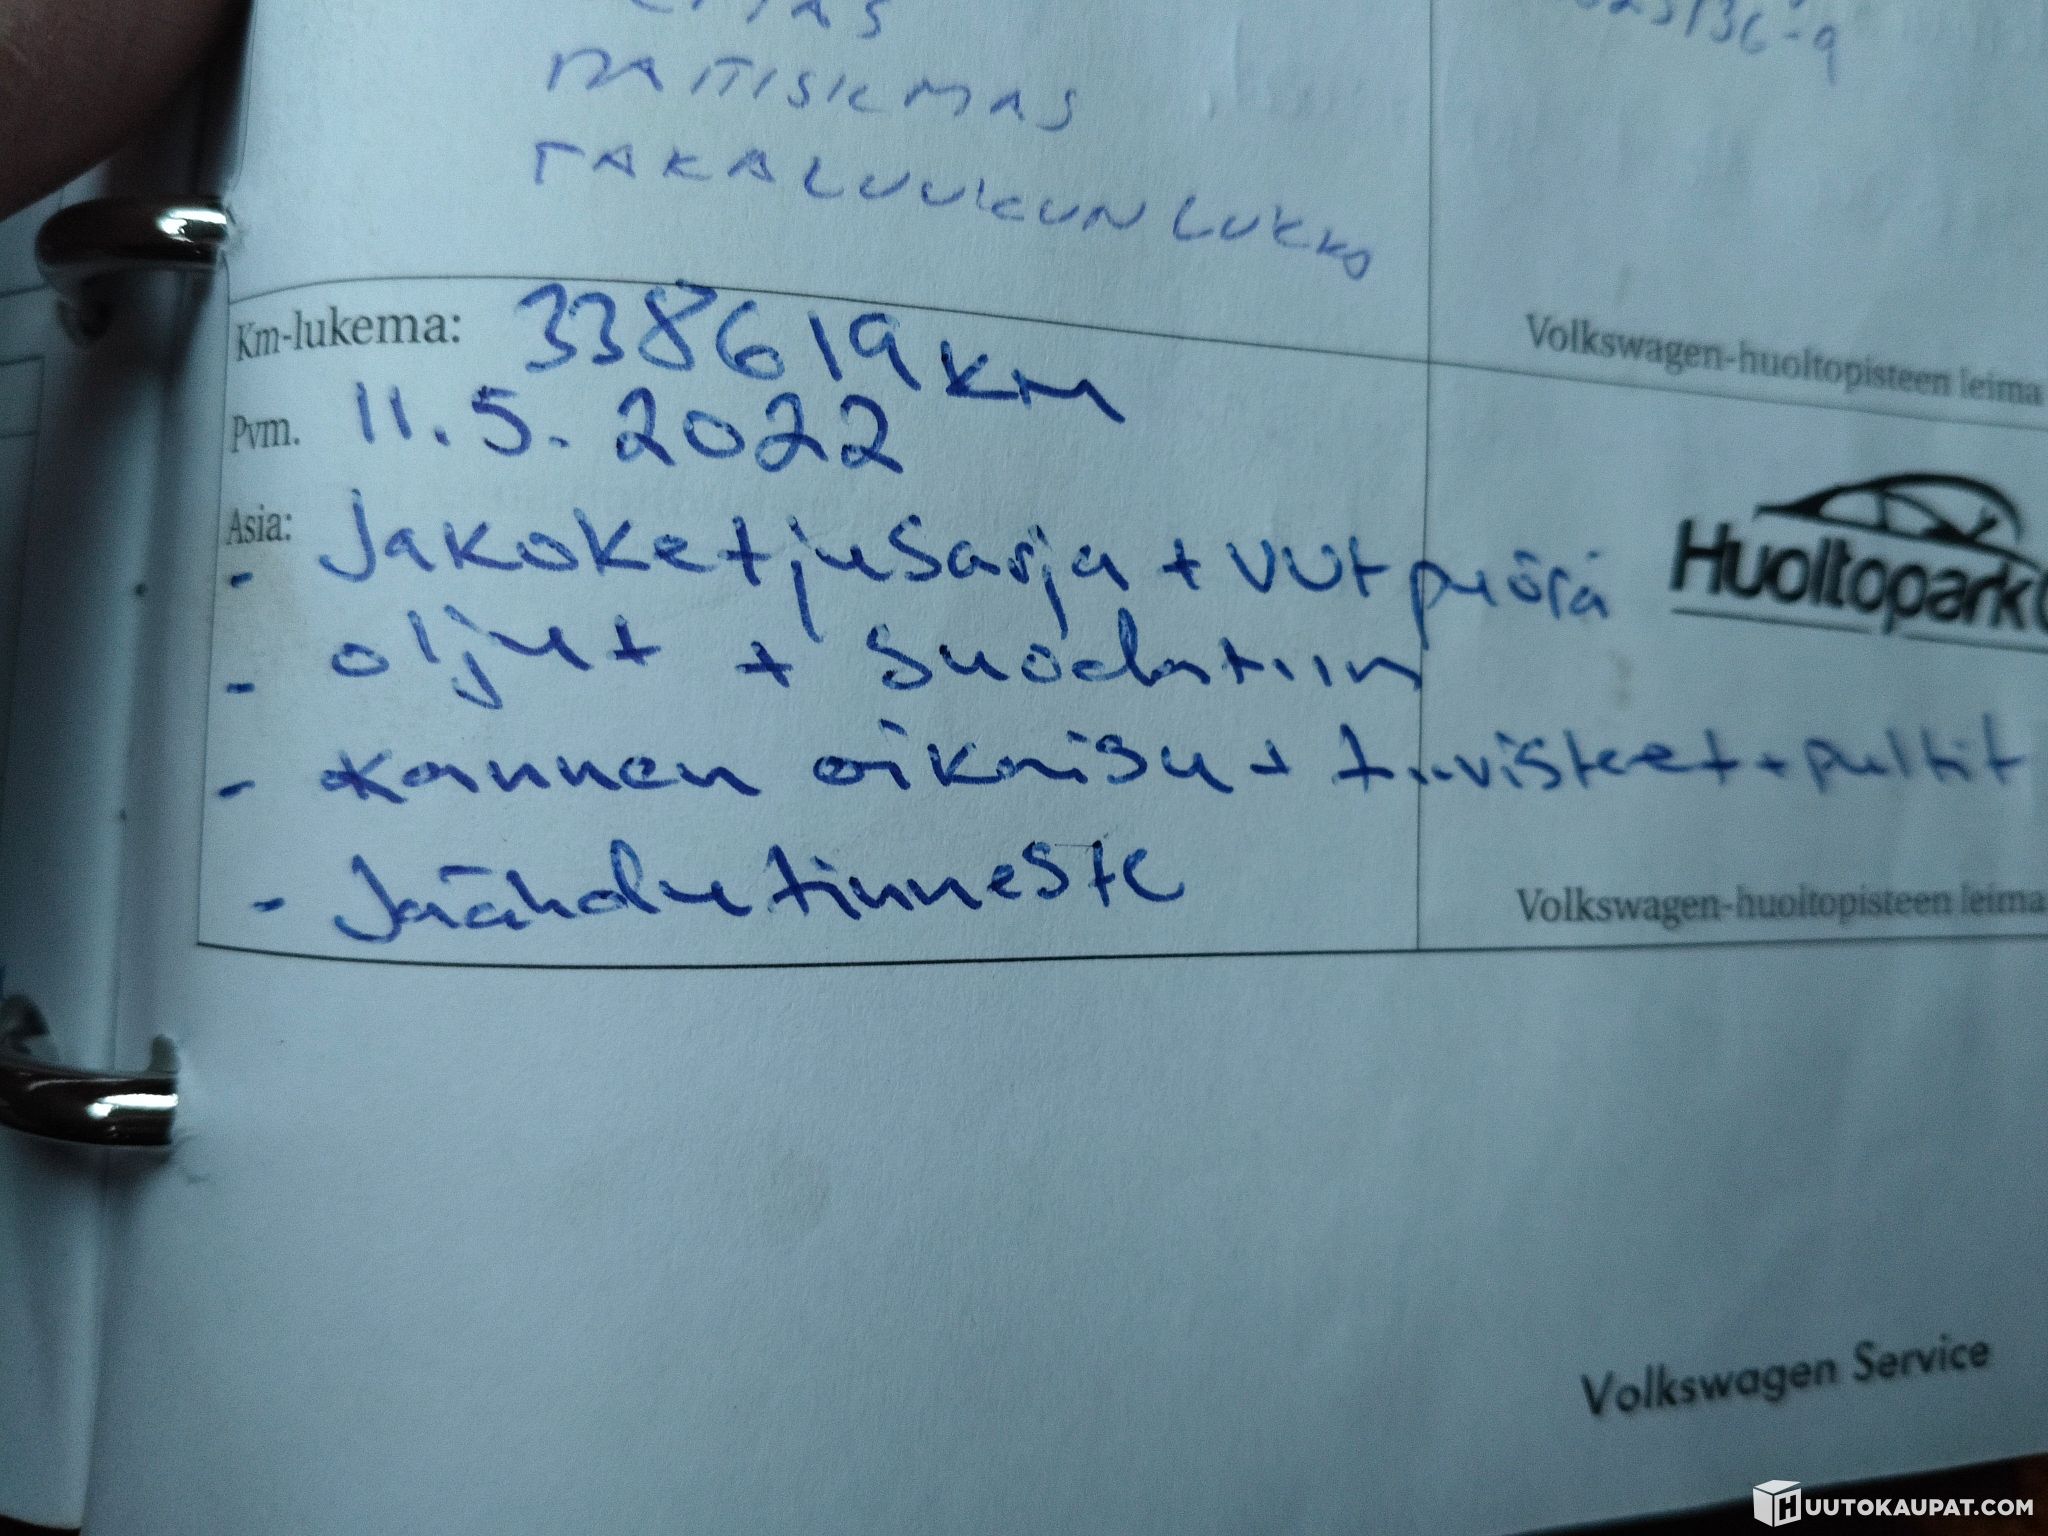 25136-9
TAKALUUKUN LUKKO
Volkswagen-huoltopisteen leima
Km-lukema: 338619 km
Pvm. 11.5.2022
Asia:
- Jakoketjusarja + VVT pyörä
Huoltopark
- öljyt + suodatin
- Kannen oikaisu + tiivisteet + pultit
- Jäähdytinneste
Volkswagen-huoltopisteen leima
Volkswagen Service
HUUTOKAUPAT.COM